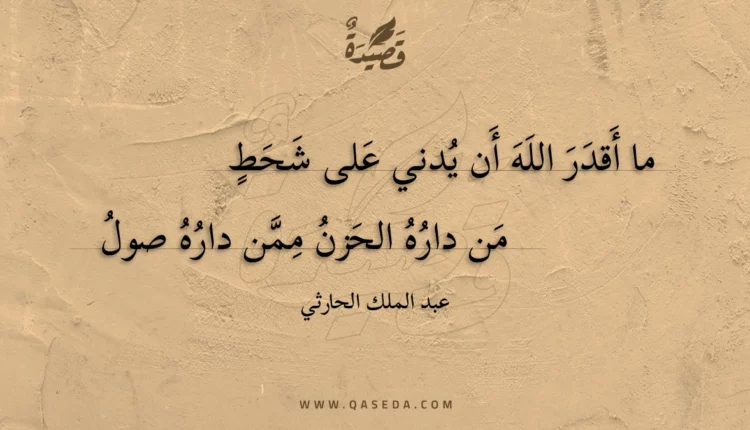 قَصِيْدَةٌ
ما أَقدَرَ اللَهَ أَن يُدني عَلى شَحَطٍ
مَن دارُهُ الحَزنُ مِمَّن دارُهُ صولُ
عبد الملك الحارثي
WWW.QASEDA.COM